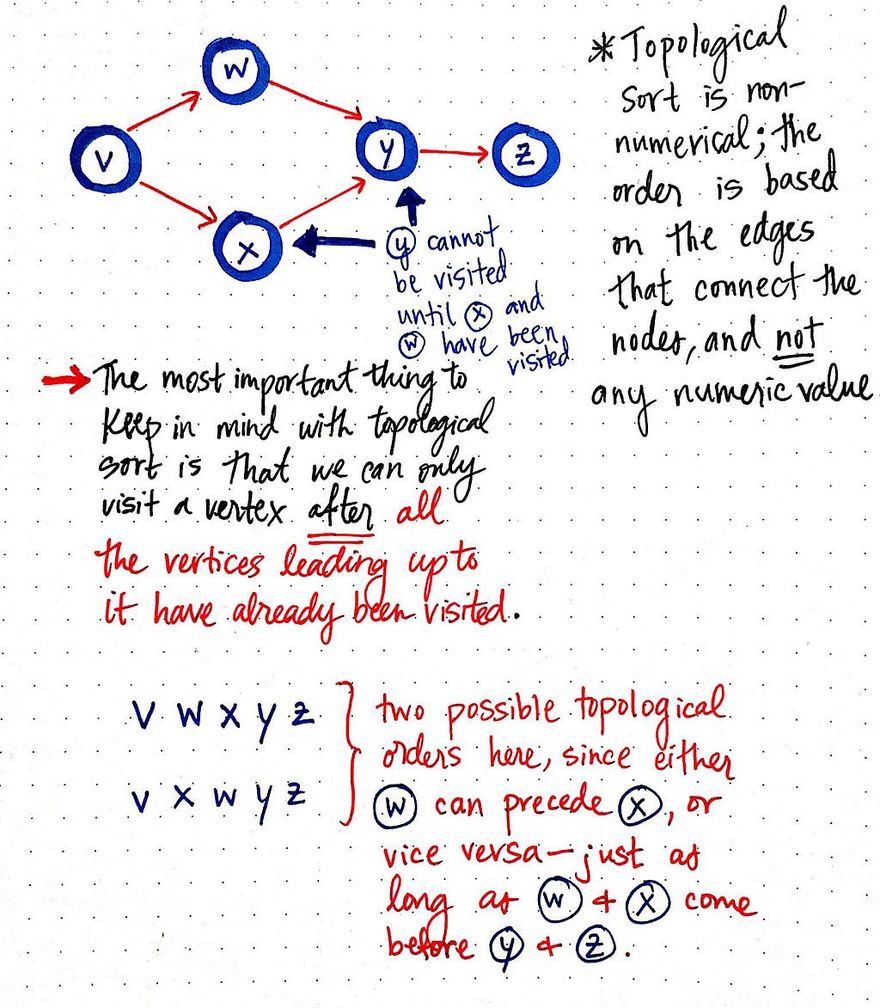 W
V
Y
Z
X
y cannot
be visited
until x and
w have been
visited
* Topological
sort is non-
numerical; the
order is based
on the edges
that connect the
nodes, and not
any numeric value
→ The most important thing to
keep in mind with topological
sort is that we can only
visit a vertex after all
the vertices leading up to
it have already been visited.
V W X Y Z
V X W Y Z
two possible topological
orders here, since either
w can precede x, or
vice versa—just as
long as w & x come
before y & z.